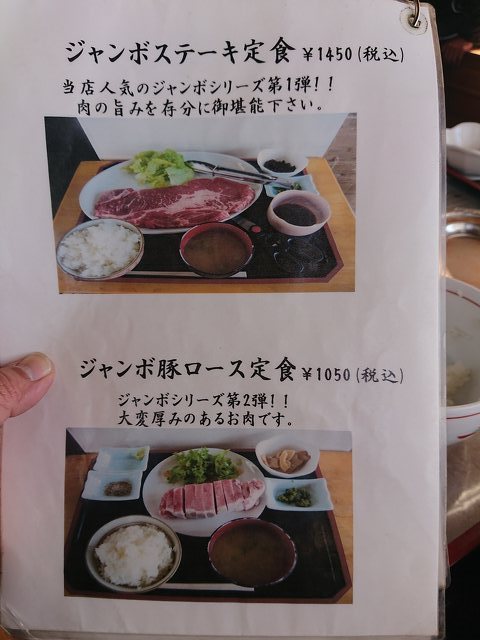 ジャンボステーキ定食 ¥1450(税込)
当店人気のジャンボシリーズ第1弾!!
肉の旨みを存分に御堪能下さい。
ジャンボ豚ロース定食 ¥1050(税込)
ジャンボシリーズ第2弾!!
大変厚みのあるお肉です。